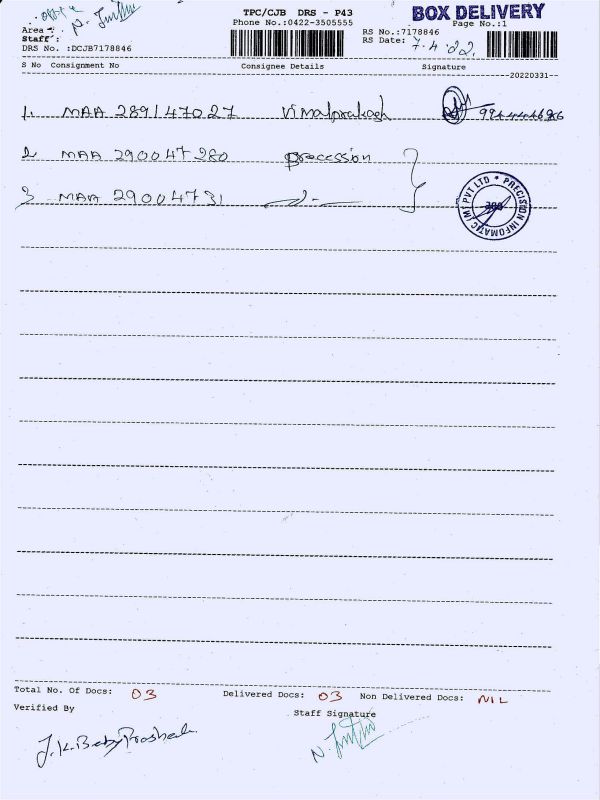 TPC/CJB DRS - P43 BOX DELIVERY
Phone No.:0422-3505555 Page No.:1
Area :
Staff :
RS No.:7178846
DRS No. :DCJB7178846 RS Date: 7-4-22
S No Consignment No Consignee Details Signature
20220331
1. MAA 289147027 Vimalprakash
2 MAA 290047280 precession
3 MAA 29004731 -"-
PRECISION INFOMATIC (M) PVT LTD *
Total No. Of Docs: 03 Delivered Docs: 03 Non Delivered Docs: NIL
Verified By Staff Signature
J.K.Baby Prashad